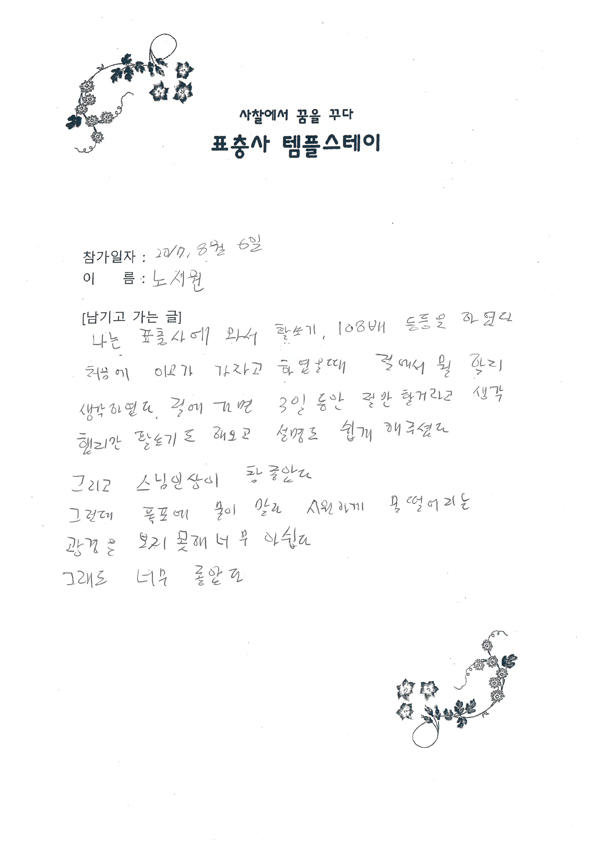 사찰에서 꿈을 꾸다
표충사 템플스테이
참가일자 : 2017. 8월 6일
이 름 : 노서권
[남기고 가는 글]
나는 표충사에 와서 활쏘기, 108배 등등을 하였다
처음에 이모가 가자고 하였을때 절에서 뭘 할지
생각하였다. 절에 가면 3일 동안 절만 할거라고 생각
했지만 활쏘기도 해보고 설명도 쉽게 해주셨다
그리고 스님인상이 참 좋았다
그런데 폭포에 물이 말라 시원하게 떨어지는
광경을 보지 못해 너무 아쉽다
그래도 너무 좋았다